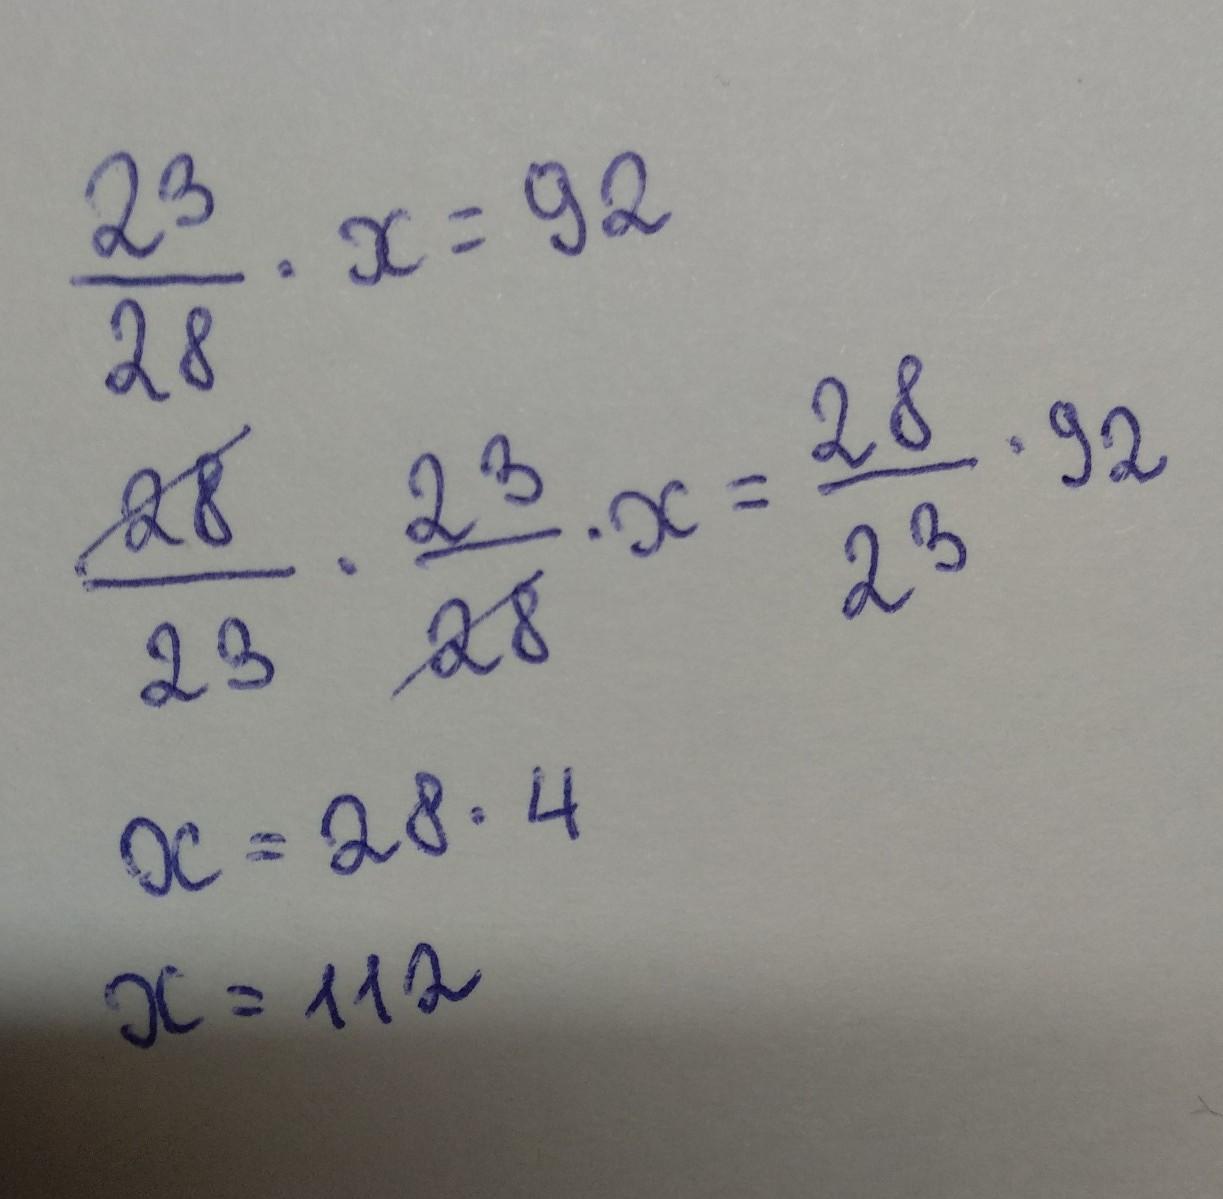 23/28 · x = 92
28/23 · 23/28 · x = 28/23 · 92
x = 28 · 4
x = 112